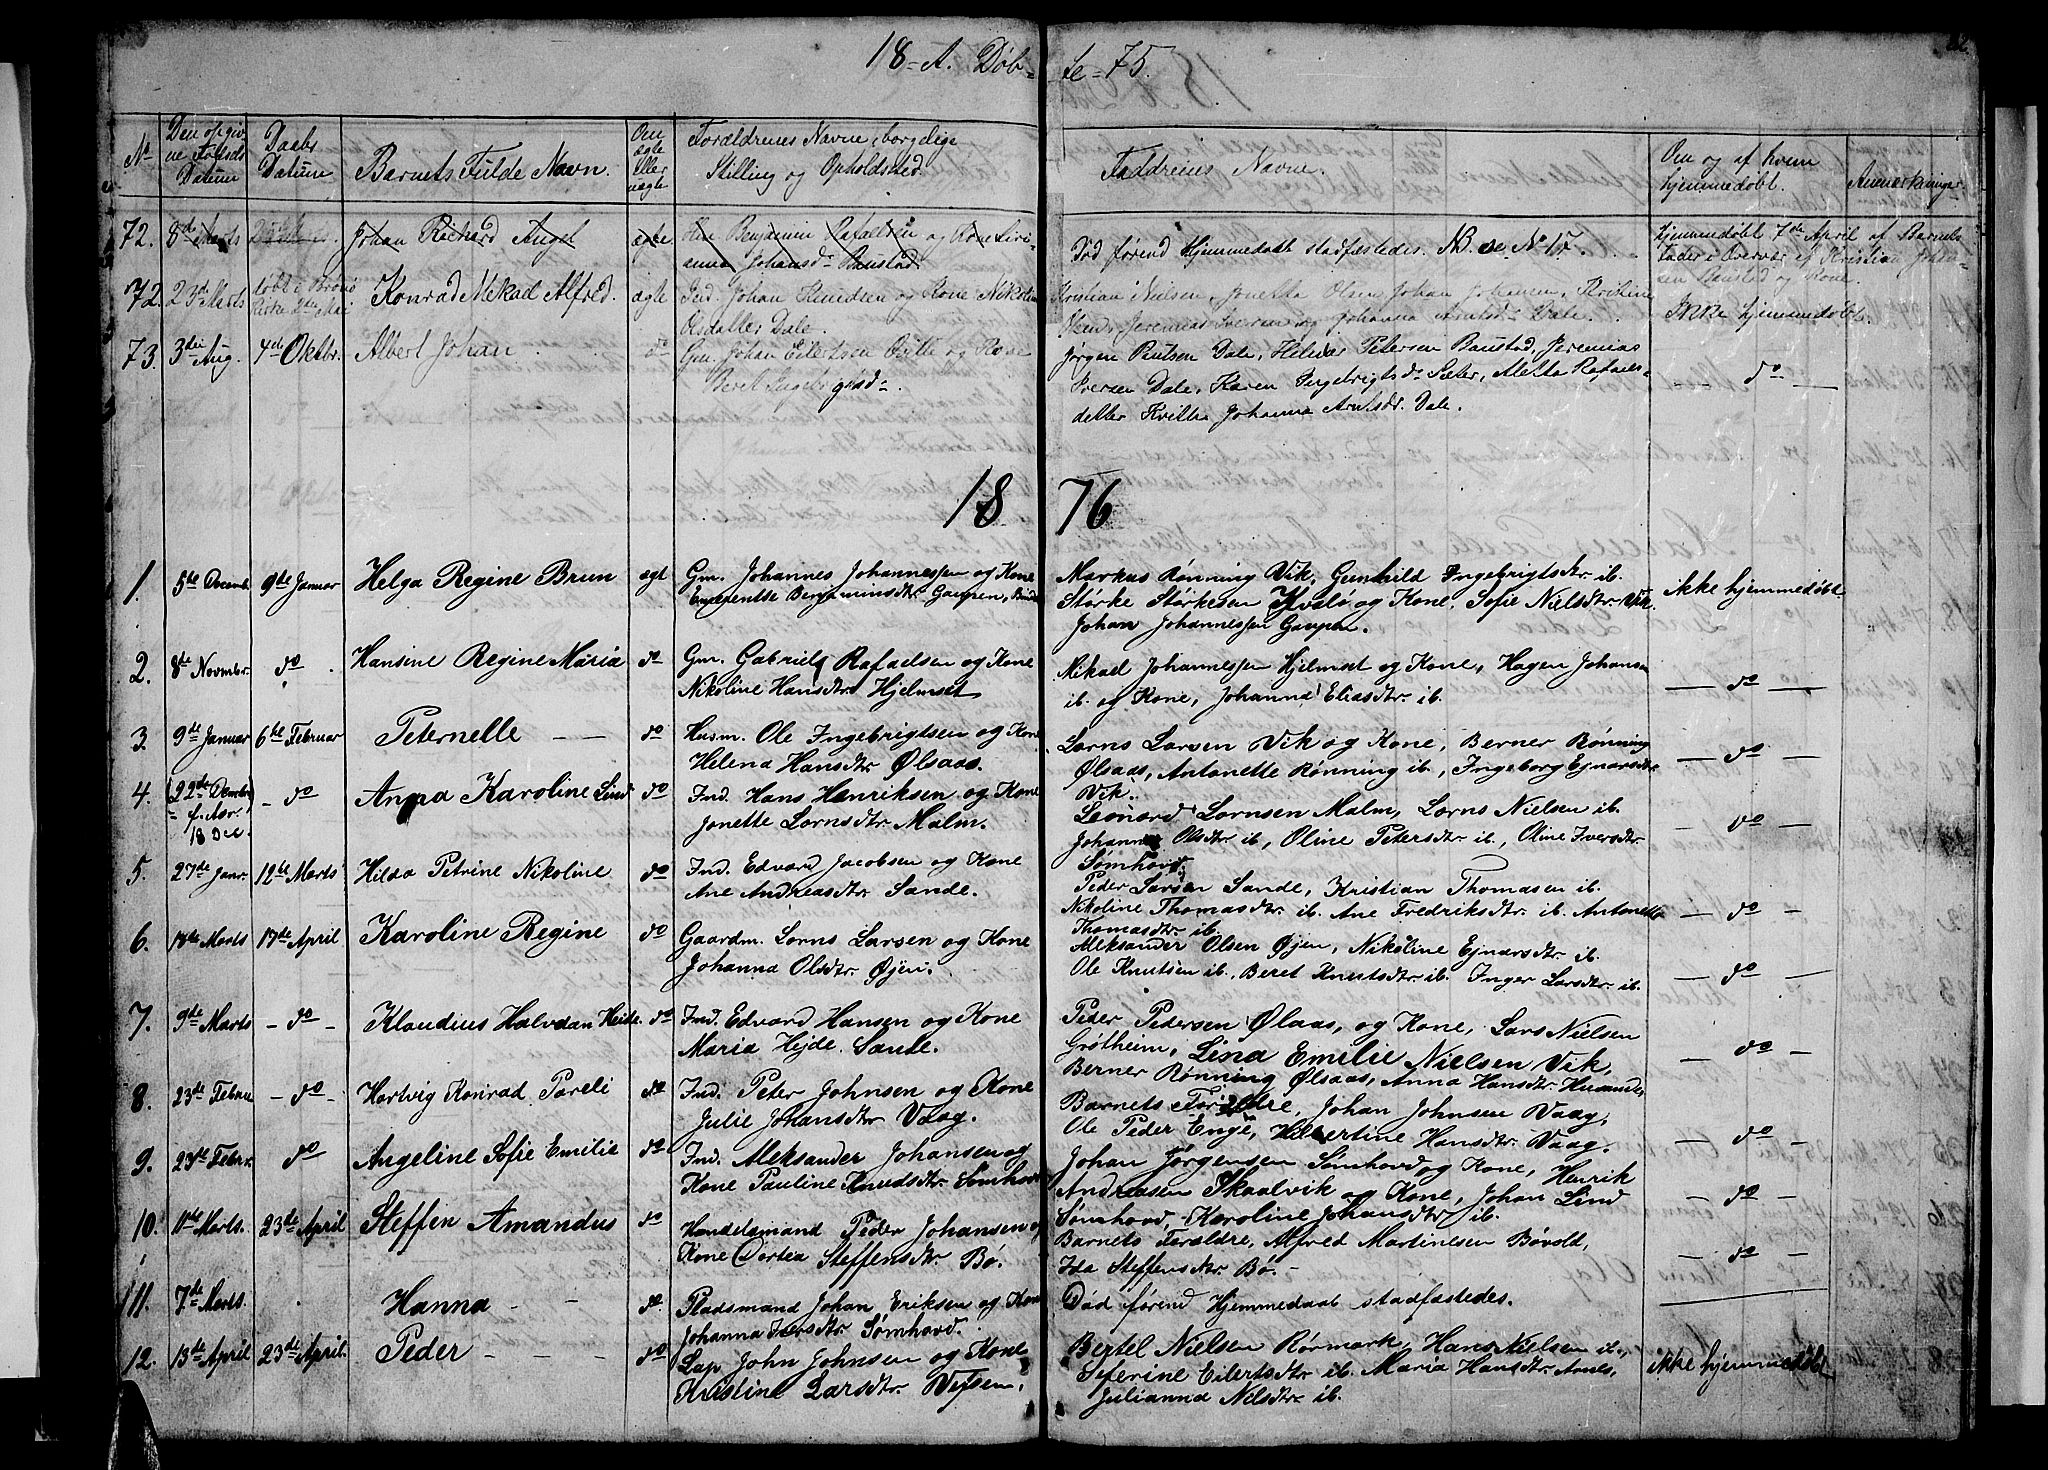 18-A. Døb-
te-75.
No
Den opgiv
ne Fødsels
Datum
Daabs
Datum
Barnets Fulde Navn.
Om
ægte
eller
uægte
Forældrenes Navne, borgelige
Stilling og Opholdssted.
Faddrenes Navne.
Om og af hvem
hjemmedøbt.
Anmerkninger
72. 8de Marts Johan Richard Angel ægte
Benjamin Rafaelsen og Kone
Johansdr Baustad.
Død førend Hjemmedaab stadfæstedes. NB. se No 17.
Hjemmedøbt 7de April af Barnets
Fader i Overvær af Kristian
Baustad og Kone.
72. 23de Marts døbt i Brønø
Kirke 2den Mai Konrad Mekael Alfred. ægte Ind. Johan Knudsen og Kone Nikoline
Olsdatter Dale.
Kristian Nielsen, Jonetta Olsen, Johan Johansen, Kristine
Jeremias Iversen og Johanna Arntsdr Dale.
Ikke hjemmedøbt.
73. 3die Aug. 4de Oktbr. Albert Johan do Gm. Johan Eilertsen og Kone
Beret Ingebrigtsd-
Jørgen Paulsen Dale, Helmer Petersen Baustad, Jeremias
Iversen Dale, Karen Ingebrigtsdr Sæter, Aletta Rafaels-
datter Kvitte, Johanna Arntsdr. Dale.
do
18 76
1. 5te Decemb 9de Januar Helga Regine Brun ægt Gm. Johannes Johannessen og Kone
Benjaminsdtr Gaupen,
Markus Rønning Vik, Gunhild Ingebrigtsdtr ib.
Størke Størkesen Kvalø og Kone, Sofie Nielsdtr Vik
Johan Johannessen Gaupen.
ikke hjemmedøbt.
2. 8de Novmbr. do Hansine Regine Maria do Gm. Gabriel Rafaelsen og Kone
Nikoline Hansdtr Hjelmset
Mikael Johannessen Hjelmset og Kone, Hagen Johansen
ib. og Kone, Johanna Eliasdtr ib.
do
3. 9de Januar 6te Februar Peternelle do Husm. Ole Ingebrigtsen og Kone
Helena Hansdtr Ølsaas.
Lorns Larsen Vik og Kone, Berner Rønning
Ølsaas, Antonette Rønning ib., Ingeborg Ejnarsdtr
Vik.
do
4. 22de Dembr
f. Aar.
18 Dec. do Anna Karoline Lind do Ind. Hans Henriksen og Kone
Jonette Lornsdtr Malm.
Leonard Lornsen Malm, Lorns Nielsen ib.
Johanna Olsdtr ib, Oline Petersdtr ib., Oline Iversdtr
Sømhovd.
do
5. 27de Janr. 12te Marts Hilda Petrine Nikoline do Ind. Edvard Jacobsen og Kone
Ane Andreasdtr Sande.
Peder Larsen Sande, Kristian Thomasen ib.
Nikoline Thomasdtr ib. Ane Fredriksdtr ib. Antonette
Thomasdtr ib.
do
6. 18de Marts 17de April Karoline Regine do Gaardm. Lorns Larsen og Kone
Johanna Olsdtr Øjen.
Aleksander Olsen Øjen, Nikoline Ejnarsdtr ib.
Ole Knutsen ib., Beret Knutsdtr ib. Inger Larsdtr ib.
do
7. 9de Marts do Klaudius Halvdan Heide. do Ind. Edvard Hansen og Kone
Maria Hejde. Sande.
Peder Pedersen Ølsaas, og Kone, Lars Nielsen
Grøtheim, Lina Emilie Nielsen Vik,
Berner Rønning Ølsaas, Anna Hansdtr
do
8. 23de Febru do Hartvig Konrad Pareli do Ind. Peter Johnsen og Kone
Julie Johansdtr Vaag.
Barnets Forældre, Johan Johnsen Vaag,
Ole Peder Enge, Hansdtr Vaag.
do
9. 23de Febr. do Angeline Sofie Emilie do Ind. Aleksander Johansen og
Kone Pauline Knudsdtr. Sømhovd
Johan Jørgensen Sømhovd og Kone, Henrik
Andreasen Skaalvik og Kone, Johan Lind
Sømhovd, Karoline Johansdtr ib.
do
10. 11te Marts. 23de April Steffen Amandus do Handelsmand Peder Johansen og
Kone Dortea Steffensdtr. Bø.
Barnets Forældre, Alfred Martinesen Bøvold,
Ida Steffensdtr. Bø.
do
11. 7de Marts. Hanna do Pladsmand Johan Eriksen og Kone
Johanna Iversdtr Sømhovd.
Død førend Hjemmedaab stadfæstedes.
12. 13de April 23de April. Peder do Lap John Johnsen og Kone
Kristine Larsdtr. Vefsen.
Bertel Nielsen Rørmark, Hans Nielsen ib.,
Seferine Eilertsdtr ib. Maria Hansdtr
Julianna Nielsdtr ib.
ikke hjemmedøbt